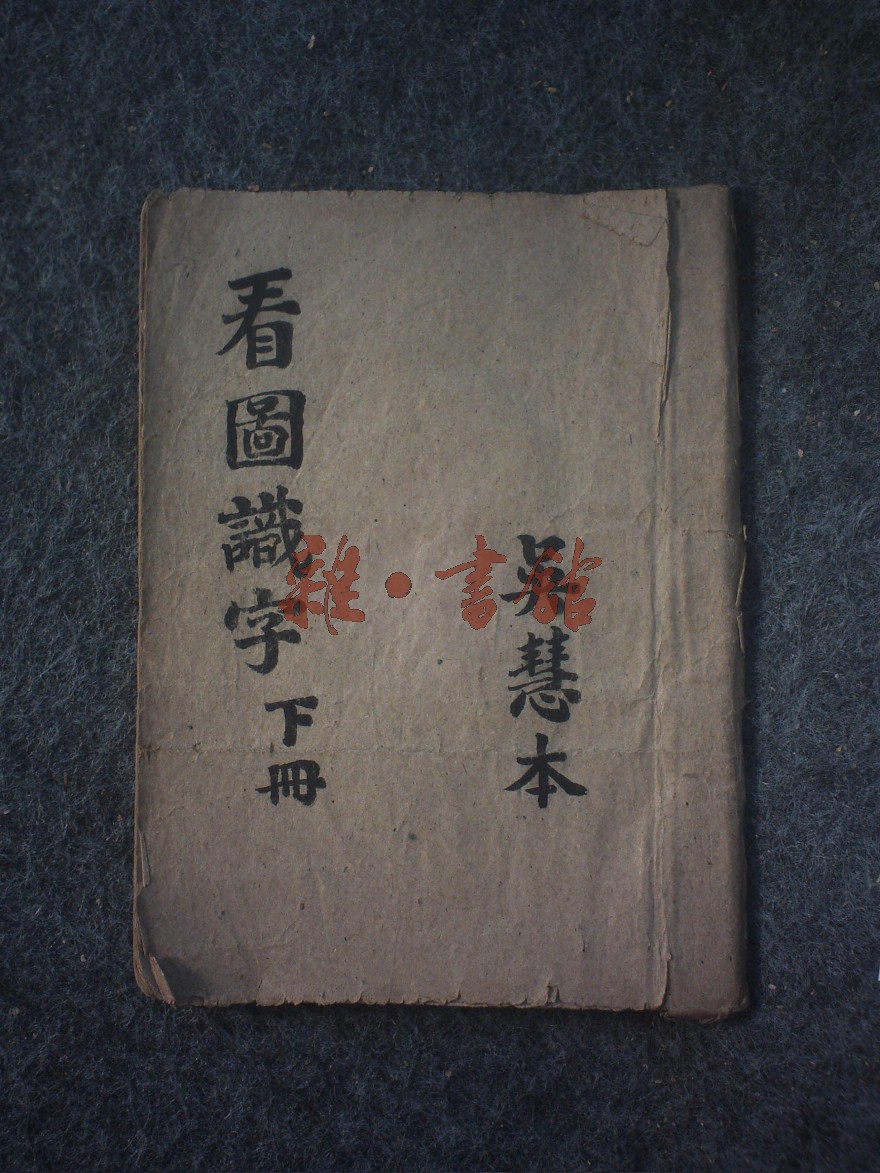 看圖識字
下冊
吳慧本
雜·書館